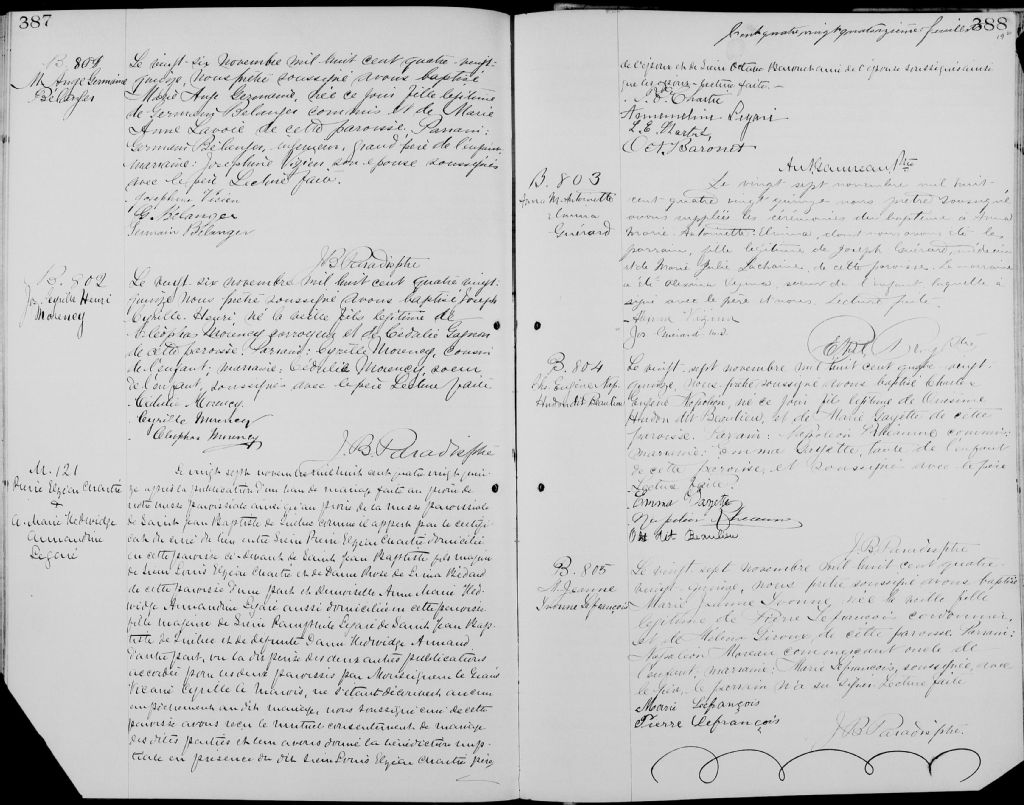 387
B. 801
M. Ange Germaine
Bélanger
Le vingt six novembre mil huit cent quatre-vingt-
quinze, nous prêtre soussigné avons baptisé
Marie Ange Germaine, née ce jour fille légitime
de Germain Bélanger commis et de Marie
Anne Lavoie de cette paroisse. Parrain:
Germain Bélanger, grand'père de l'enfant,
marraine: Josephine Vézien son épouse soussignés
avec le père Lecture faite.
Josephine
G. Bélanger
Germain Bélanger
J. B. Paradis ptre
B. 802
Jos. Cyrille Henri
Morency
Le vingt six novembre mil huit cent quatre vingt
quinze nous prêtre soussigné avons baptisé Joseph
Cyrille Henri, né la veille fils légitime de
Cléophas Morency corroyeur et de Cédulie Gagnon
de cette paroisse. Parrain: Cyrille Morency, cousin
de l'enfant; marraine: Morency, soeur
de l'enfant, soussignés avec le père Lecture faite
Morency
Cyrille Morency
Cléophas Morency
J. B. Paradis ptre
M. 121
Pierre Elzéar Chartré
&
A. Marie Hedwidge
Armandine
Legaré
Le vingt sept novembre mil huit cent quatre vingt quin-
ze après la publication d'un ban de mariage faite au prône de
notre messe paroissiale ainsi qu'au prône de la messe paroissiale
de Saint Jean Baptiste de Québec comme il appert par le certifi-
cat du curé du lieu entre Sieur Pierre Elzéar Chartré domicilié
en cette paroisse ci-devant de Saint Jean Baptiste fils majeur
de Sieur Louis Elzéar Chartré et de Dame Rose de Lima Bédard
de cette paroisse d'une part et Demoiselle Anne Marie Hed-
widge Armandine Légaré aussi domiciliée en cette paroisse
fille majeure de Sieur Légaré de Saint Jean Bap-
tiste de Québec et de défunte Dame Hedwidge Amand
d'autre part, vu la dispense des deux autres publications
accordée pour les deux paroisses par Monseigneur le Grand
Vicaire Cyrille E. Marois, ne s'étant découvert aucun
empêchement au dit mariage, nous soussigné curé de cette
paroisse avons reçu le mutuel consentement de mariage
des dites parties et leur avons donné la bénédiction nup-
tiale en présence du dit Sieur Louis Elzéar Chartré père
Cent quatre vingt quatorzième feuillet
388
de l'époux et de Sieur Octave Baronet ami de l'épouse soussignés ainsi
que les époux. Lecture faite.
P. E. Chartré
Armandine Légaré
L. E. Chartré
Oct. Baronet
Ptre
B. 803
Anna M. Antoinette
Elmina
Guérard
Le vingt sept novembre mil huit
cent quatre vingt quinze nous prêtre soussigné
avons suppléé les cérémonies du baptême à Anna
Marie-Antoinette-Elmina, dont nous avons été le
parrain, fille légitime de Joseph Guérard, médecin
et de Marie Julie Lachaine, de cette paroisse. La marraine
a été soeur de l'enfant laquelle a
signé avec le père et nous. Lecture faite
Jos. Guérard M.D.
B. 804
Chs. Eugène Nap.
Hudon dit Beaulieu
Le vingt-sept novembre mil huit cent quatre-vingt-
quinze, nous prêtre soussigné avons baptisé Charles
Eugène Napoléon, né ce jour fils légitime de Onésime
Hudon dit Beaulieu, et de Marie Gayette de cette
paroisse. Parrain: Napoléon commis;
marraine: Emma Gayette, tante de l'enfant
de cette paroisse, et soussignés avec le père
Lecture faite.
Emma Gayette
Napoléon
Beaulieu
J. B. Paradis ptre
B. 805
M. Jeanne
Ivonne Lefrançois
Le vingt sept novembre mil huit cent quatre-
vingt-quinze, nous prêtre soussigné avons baptisé
Marie Jeanne Ivonne, née la veille fille
légitime de Pierre Lefrançois cordonnier,
et de Giroux, de cette paroisse. Parrain:
Napoléon Moreau commerçant oncle de
l'enfant, marraine: Marie Lefrançois, soussignée, avec
le père, le parrain n'a su signer Lecture faite
Marie Lefrançois
Pierre Lefrançois
J. B. Paradis ptre